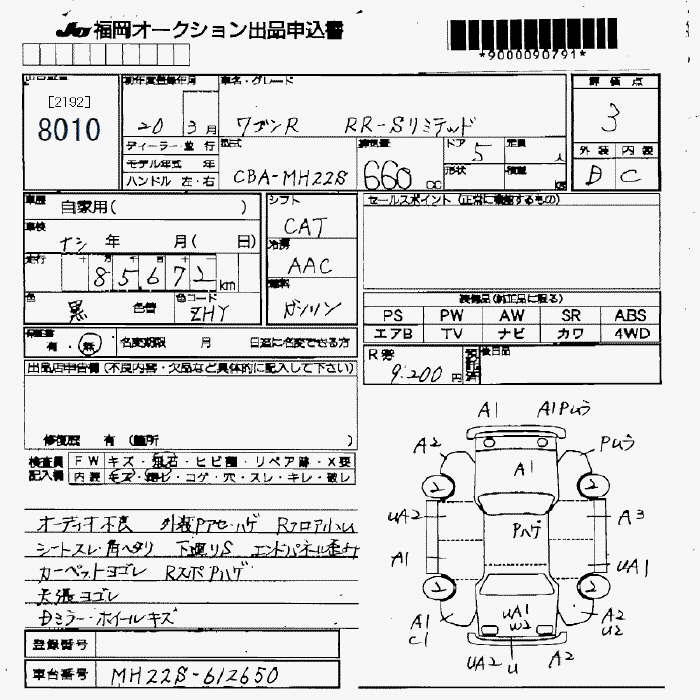 JU 福岡オークション出品申込書
*9000090791*
[2192]
8010
初年度登録年月
20 3月
車名・グレード
ワゴンR RR-Sリミテッド
評価点
3
外装 内装
D C
ディーラー 並行
モデル年式 年
ハンドル 左・右
型式
CBA-MH22S
排気量
660 CC
ドア
5
定員
人
形状
積載
車歴
自家用( )
車検
ナシ 年 月( 日)
走行
十 万 千 百 十 一
85672 km
色
黒
色替
色コード
ZHY
シフト
CAT
冷房
AAC
燃料
ガソリン
セールスポイント (正常に機能するもの)
装備品(純正品に限る)
PS PW AW SR ABS
エアB TV ナビ カワ 4WD
有・無
名変期限 月 日迄に名変できる方
R券
9.200 円
預託済
後日品
出品店申告欄 (不良内容・欠品など具体的に記入して下さい)
修復歴 有 (箇所 )
検査員記入欄
FW キズ・飛石・ヒビ割・リペア跡・X要
内装 キズ・汚レ・コゲ・穴・スレ・キレ・破レ
オーディオ不良 外装Pアセ・ハゲ Rフロア小凹
シートスレ・角ヘタリ 下廻りS エンドパネル歪み
カーペットヨゴレ RスポPハゲ
天張ヨゴレ
Dミラー・ホイールキズ
登録番号
車台番号
MH22S-612650
A1 A1Pムラ
A2 Pムラ
A1
2 2
UA2 Pハゲ A3
A1 UA1
2 2
A1 C1
UA1 W2
A2 U2
UA2 U A2